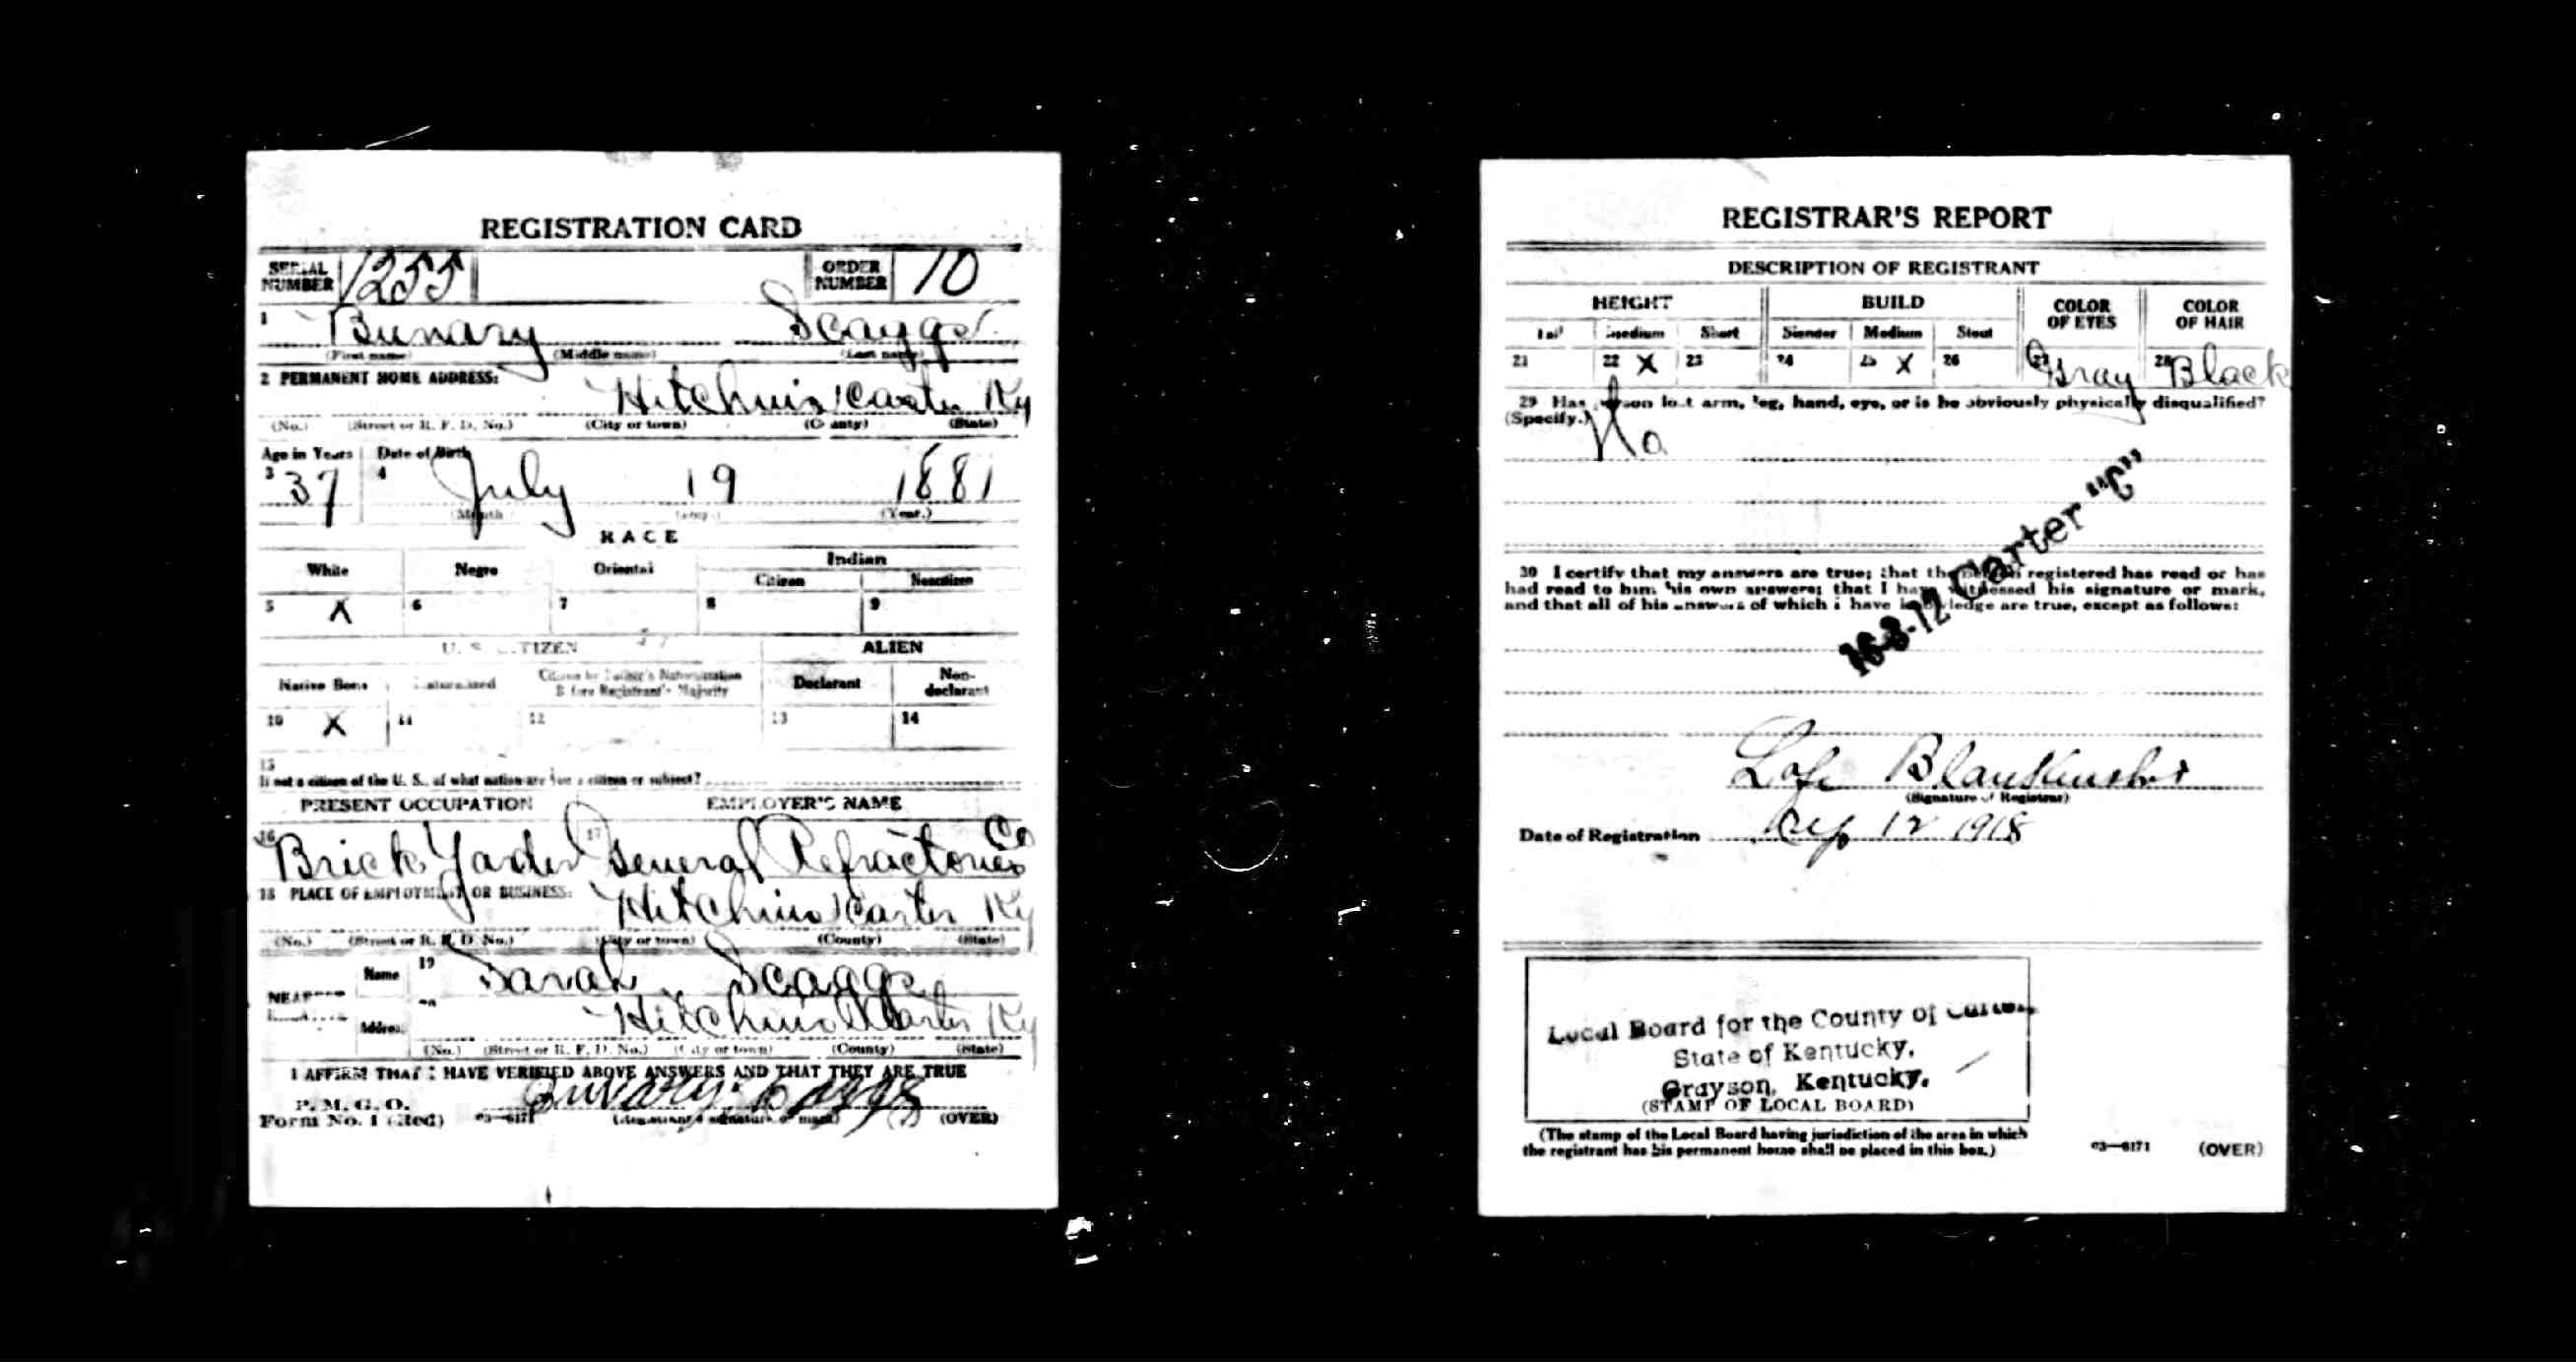 REGISTRATION CARD
SERIAL NUMBER 1255 ORDER NUMBER 10
1 Bunary Scaggs
(First name) (Middle name) (Last name)
2 PERMANENT HOME ADDRESS:
Hitchins Carter Ky
(No.) (Street or R. F. D. No.) (City or town) (County) (State)
Age in Years Date of Birth
3 37 4 July 19 1881
(Month) (Day.) (Year.)
RACE
White Negro Oriental Indian
Citizen Noncitizen
5 X 6 7 8 9
U. S. CITIZEN ALIEN
Native Born Naturalized Citizen by Father's Naturalization Before Registrant's Majority Declarant Non-declarant
10 X 11 12 13 14
15
If not a citizen of the U. S., of what nation are you a citizen or subject?
PRESENT OCCUPATION EMPLOYER'S NAME
16 Brick Yard 17 General Refractories Co
18 PLACE OF EMPLOYMENT OR BUSINESS:
Hitchins Carter Ky
(No.) (Street or R. F. D. No.) (City or town) (County) (State)
NEAREST Name 19 Sarah Scaggs
Address 20 Hitchins Carter Ky
(No.) (Street or R. F. D. No.) (City or town) (County) (State)
I AFFIRM THAT I HAVE VERIFIED ABOVE ANSWERS AND THAT THEY ARE TRUE
P. M. G. O.
Form No. 1 (Red) 03—6171 Bunary Scaggs
(Registrant's signature or mark) (OVER)
REGISTRAR'S REPORT
DESCRIPTION OF REGISTRANT
HEIGHT BUILD COLOR OF EYES COLOR OF HAIR
Tall Medium Short Slender Medium Stout
21 22 X 23 24 25 X 26 27 Gray 28 Black
29 Has person lost arm, leg, hand, eye, or is he obviously physically disqualified?
(Specify.) No
30 I certify that my answers are true; that the person registered has read or has
had read to him his own answers; that I have witnessed his signature or mark,
and that all of his answers of which I have knowledge are true, except as follows:
16-3-12 Carter "C"
Blankinship
(Signature of Registrar)
Date of Registration Sep 12 1918
Local Board for the County of Carter,
State of Kentucky,
Grayson, Kentucky.
(STAMP OF LOCAL BOARD)
(The stamp of the Local Board having jurisdiction of the area in which
the registrant has his permanent home shall be placed in this box.)
03—6171 (OVER)